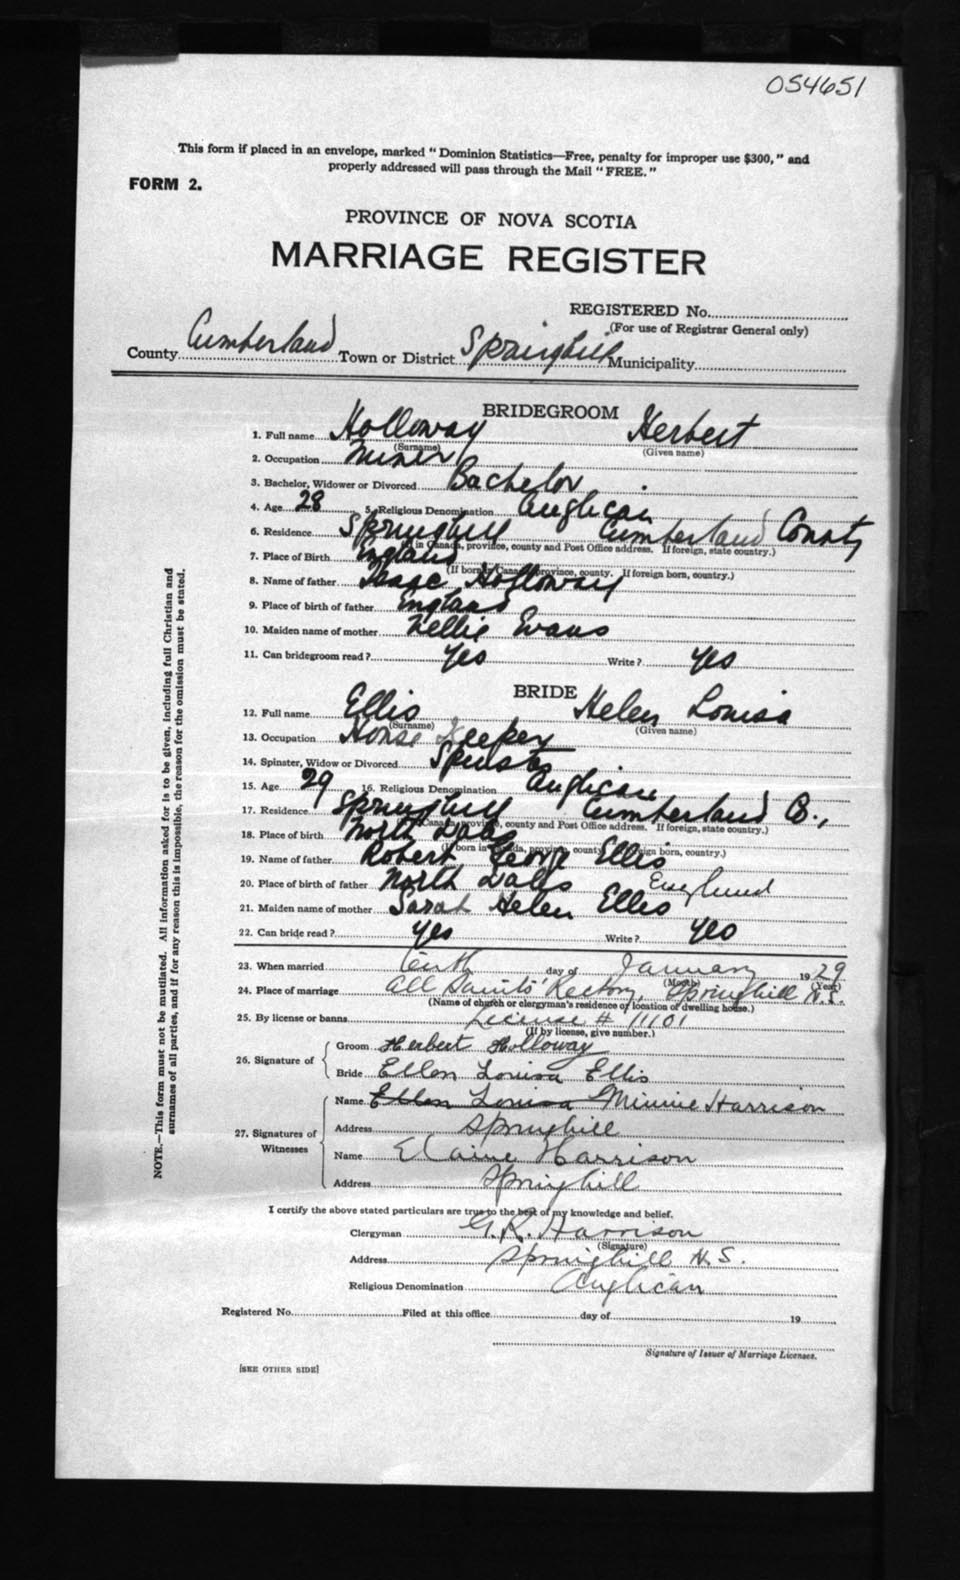 054651
This form if placed in an envelope, marked "Dominion Statistics—Free, penalty for improper use $300," and
properly addressed will pass through the Mail "FREE."
FORM 2.
PROVINCE OF NOVA SCOTIA
MARRIAGE REGISTER
REGISTERED No.
(For use of Registrar General only)
County Cumberland Town or District Springhill Municipality
BRIDEGROOM
1. Full name Holloway Herbert
(Surname) (Given name)
2. Occupation Miner
3. Bachelor, Widower or Divorced Bachelor
4. Age 28 5. Religious Denomination Anglican
6. Residence Springhill Cumberland County
(If in Canada, province, county and Post Office address. If foreign, state country.)
7. Place of Birth England
(If born in Canada, province, county. If foreign born, country.)
8. Name of father Isaac Holloway
9. Place of birth of father England
10. Maiden name of mother Nellie Evans
11. Can bridegroom read? Yes Write? Yes
BRIDE
12. Full name Ellis Helen Louisa
(Surname) (Given name)
13. Occupation House Keeper
14. Spinster, Widow or Divorced Spinster
15. Age 29 16. Religious Denomination Anglican
17. Residence Springhill Cumberland Co.,
(If in Canada, province, county and Post Office address. If foreign, state country.)
18. Place of birth North
(If born in Canada, province, county. If foreign born, country.)
19. Name of father Robert George Ellis
20. Place of birth of father North England
21. Maiden name of mother Sarah Helen Ellis
22. Can bride read? Yes Write? Yes
23. When married Tenth day of January 1929
(Month) (Year)
24. Place of marriage All Saints' Rectory, Springhill N.S.
(Name of church or clergyman's residence or location of dwelling house.)
25. By license or banns License # 11101
(If by license, give number.)
26. Signature of Groom Herbert Holloway
Bride Ellen Louisa Ellis
27. Signatures of Witnesses Name Ellen Louisa Minnie Harrison
Address Springhill
Name Elaine Harrison
Address Springhill
I certify the above stated particulars are true to the best of my knowledge and belief.
Clergyman G.R. Harrison
(Signature)
Address Springhill N.S.
Religious Denomination Anglican
Registered No. Filed at this office day of 19
Signature of Issuer of Marriage Licenses.
[SEE OTHER SIDE]
NOTE.—This form must not be mutilated. All information asked for is to be given, including full Christian and
surnames of all parties, and if for any reason this is impossible, the reason for the omission must be stated.